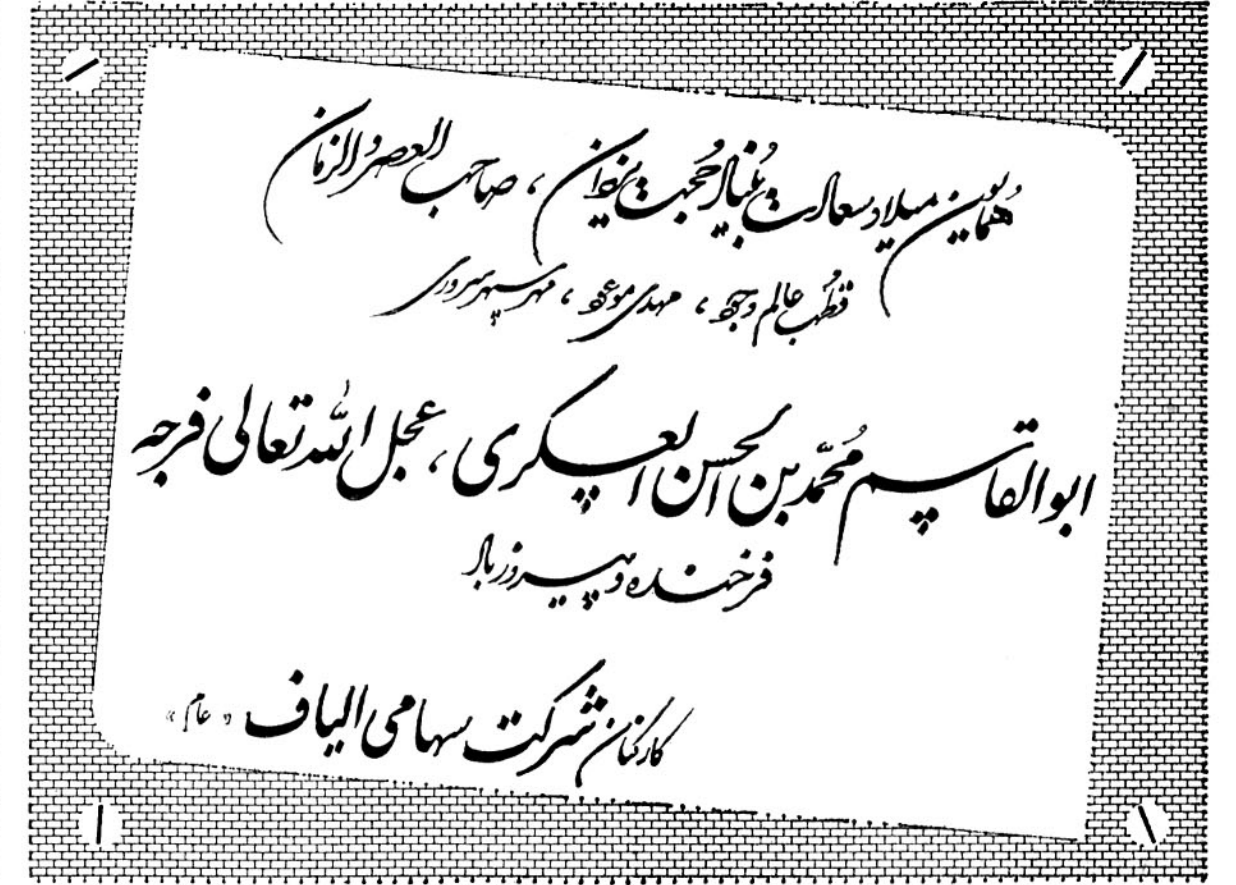 همایون میلاد سعادت بنیاد حجت یزدان ، صاحب العصر والزمان
قطب عالم وجود ، مهدی موعود ، مهر سپهر سروری
ابوالقاسم محمّد بن الحسن العسکری ، عجل الله تعالی فرجه
فرخنده و پیروز باد
کارکنان شرکت سهامی الیاف « عام »